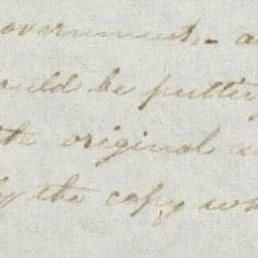 overnment, - a
uld be putting
the original a
by the copy wh